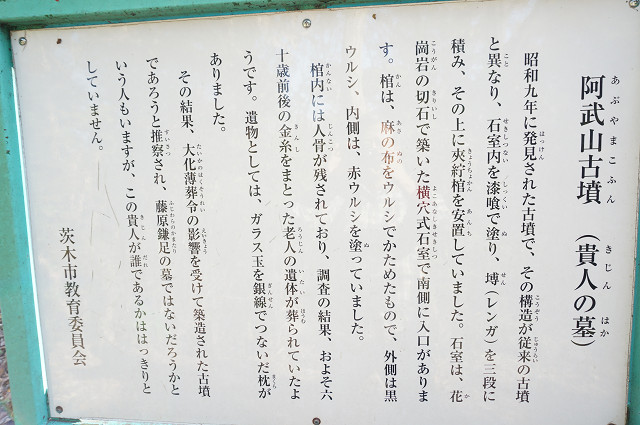 阿武山古墳（貴人の墓）
あぶやまこふん　きじん　はか
昭和九年に発見された古墳で、その構造が従来の古墳
と異なり、石室内を漆喰で塗り、塼（レンガ）を三段に
積み、その上に夾紵棺を安置していました。石室は、花
崗岩の切石で築いた横穴式石室で南側に入口がありま
す。棺は、麻の布をウルシでかためたもので、外側は黒
ウルシ、内側は、赤ウルシを塗っていました。
棺内には人骨が残されており、調査の結果、およそ六
十歳前後の金糸をまとった老人の遺体が葬られていたよ
うです。遺物としては、ガラス玉を銀線でつないだ枕が
ありました。
その結果、大化薄葬令の影響を受けて築造された古墳
であろうと推察され、藤原鎌足の墓ではないだろうかと
いう人もいますが、この貴人が誰であるかははっきりと
していません。
茨木市教育委員会